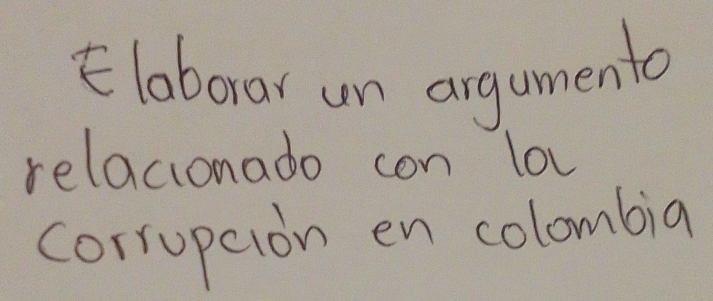 Elaborar un argumento
relacionado con la
corrupción en colombia